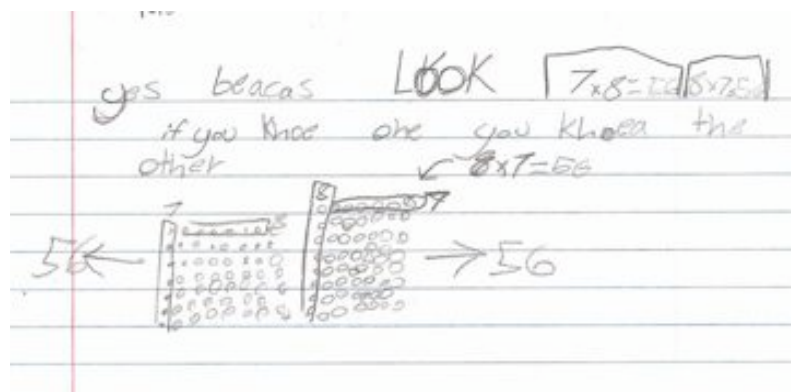 yes beacas LOOK 7x8=56 8x7=56
if you khoe one you khoea the
other 8x7=56
7 8 8 7
56 56